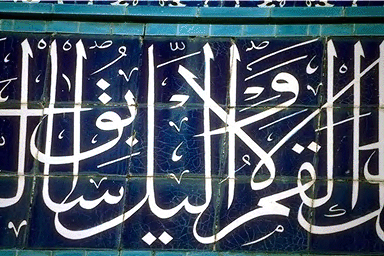 القمر ولا الليل سابق